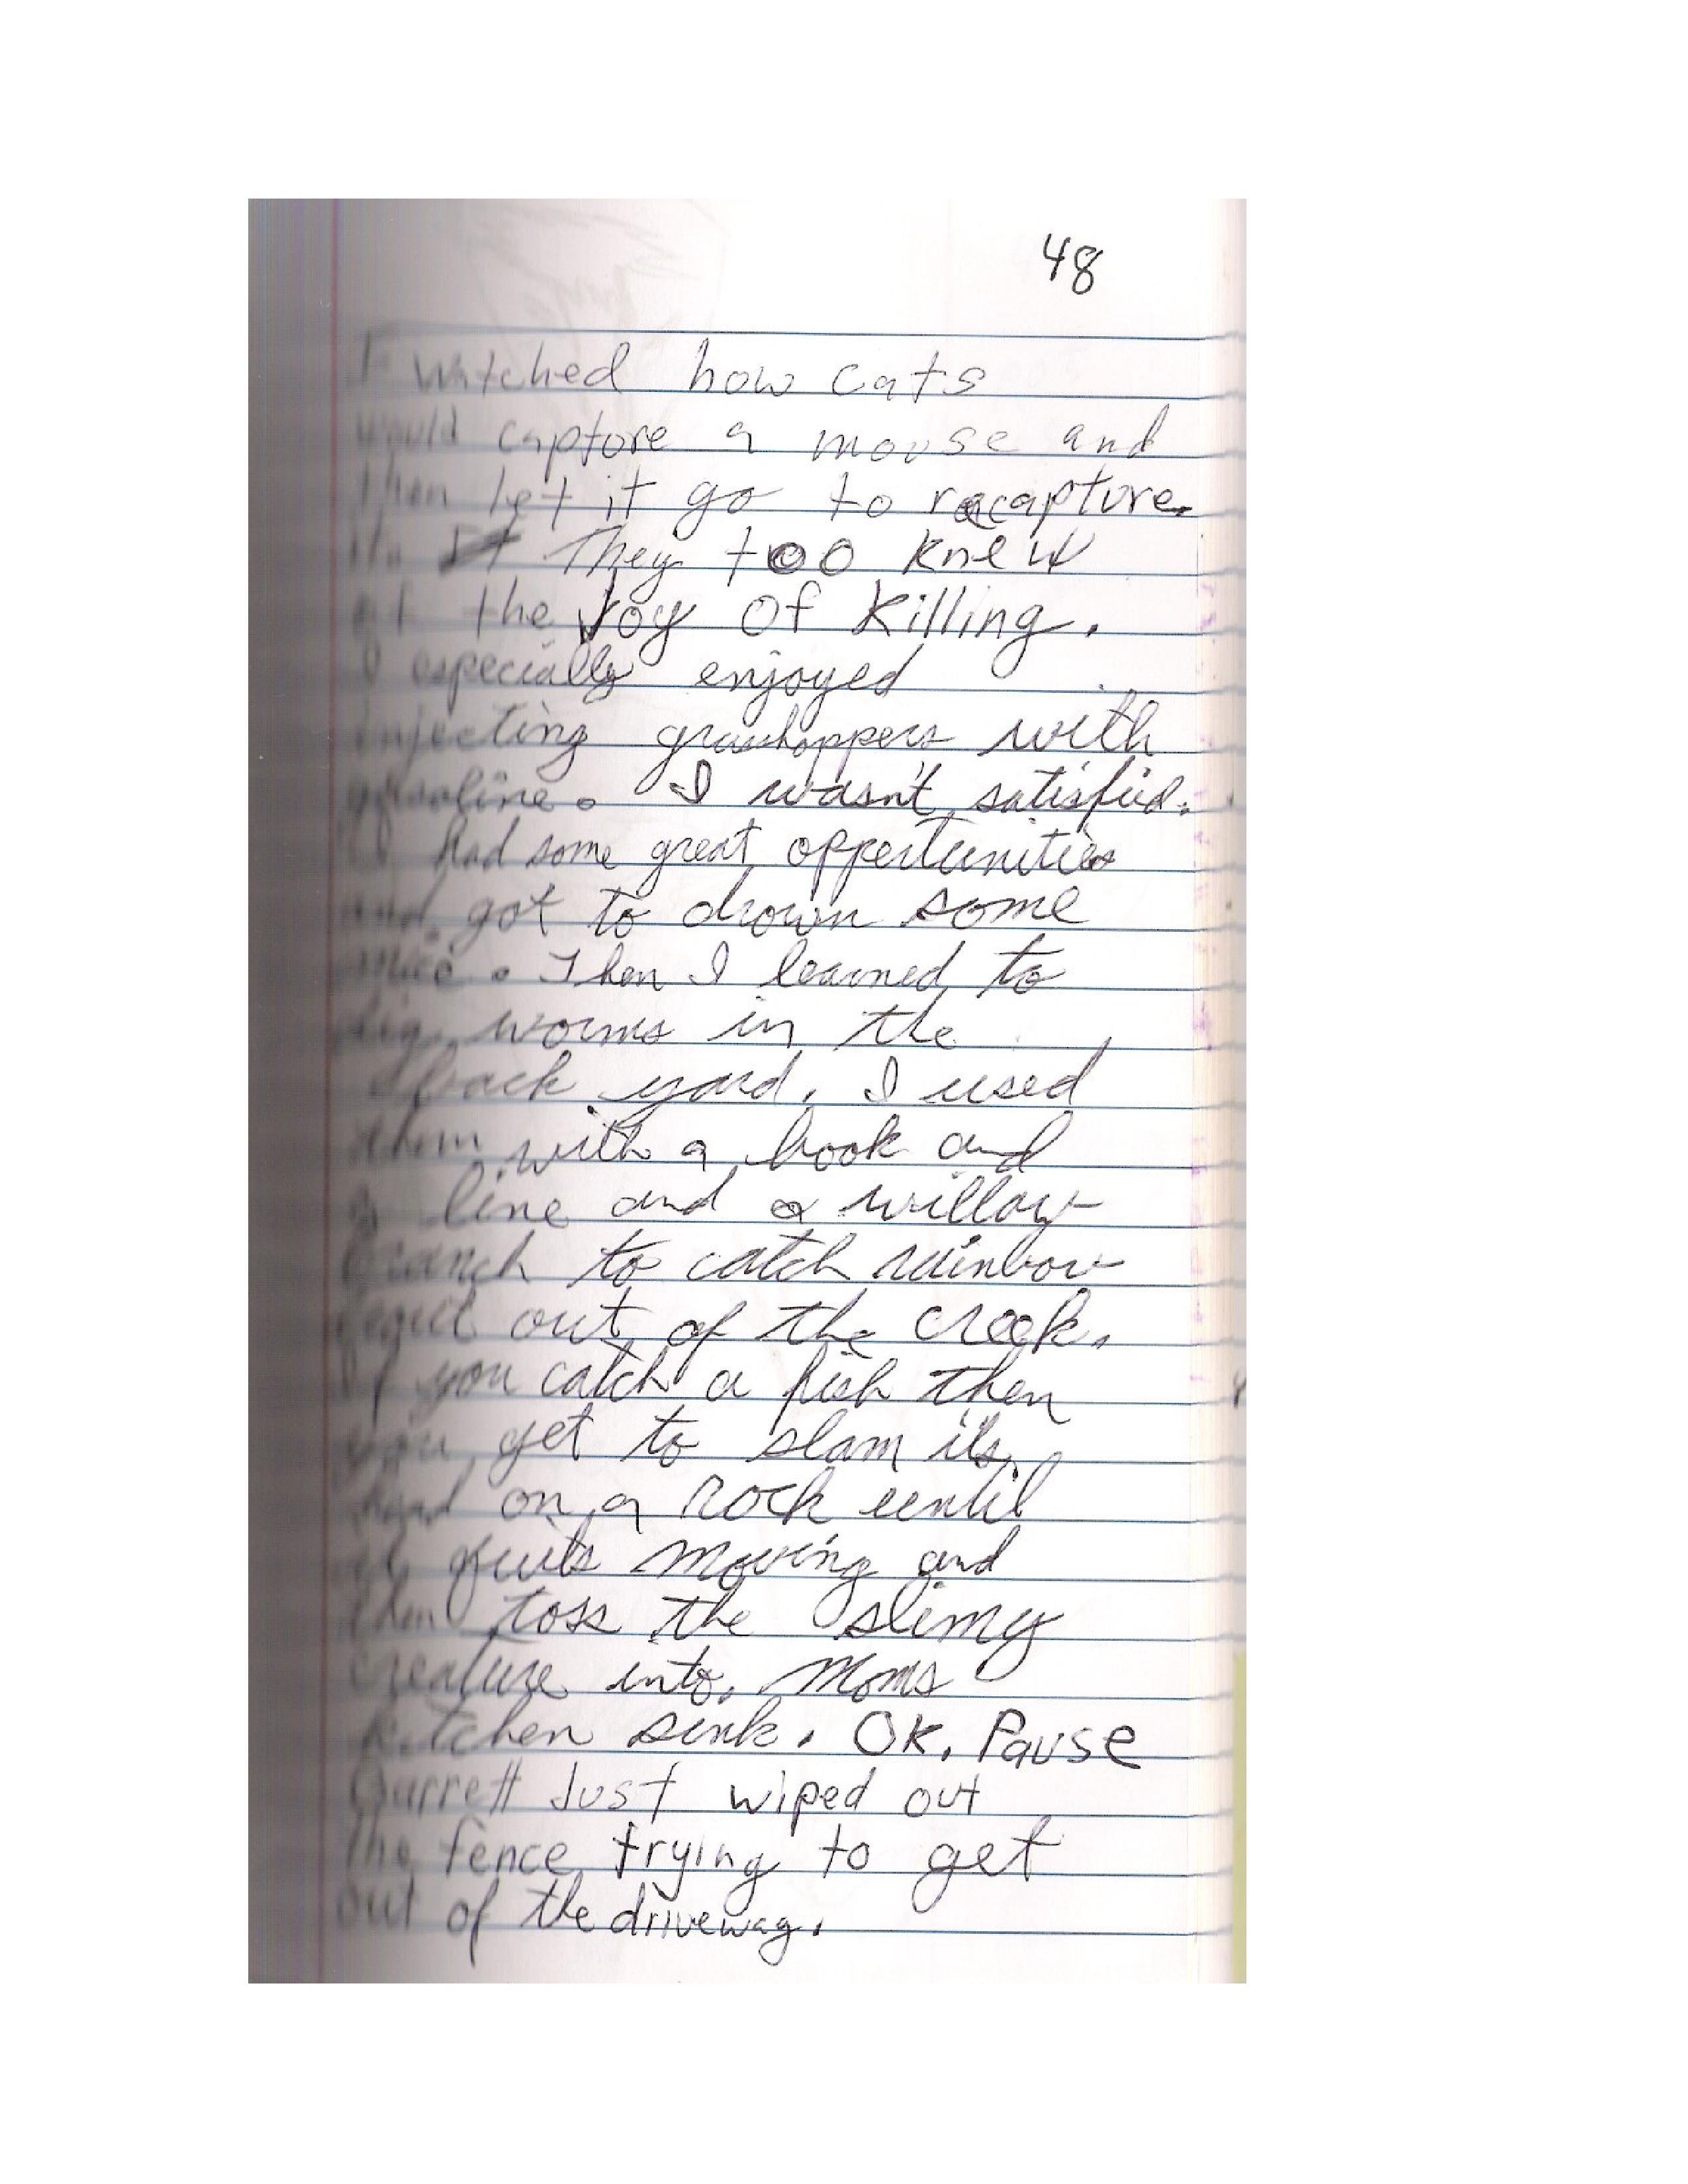 48
I watched how cats
would capture a mouse and
then let it go to recapture
it. They too knew
of the Joy Of Killing.
I especially enjoyed
injecting grasshoppers with
gasoline. I wasn't satisfied.
I had some great oppertunities
and got to drown some
mice. Then I learned to
dig worms in the
back yard. I used
them with a hook and
a line and a willow
branch to catch rainbow
trout out of the creek.
If you catch a fish then
you get to slam its
head on a rock until
it quits moving and
then toss the slimy
creature into Moms
kitchen sink. OK. Pause
Garrett Just wiped out
the fence trying to get
out of the driveway.